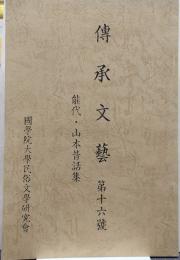 傳承文藝 第十六號
能代・山本昔話集
國學院大學民俗文學研究會